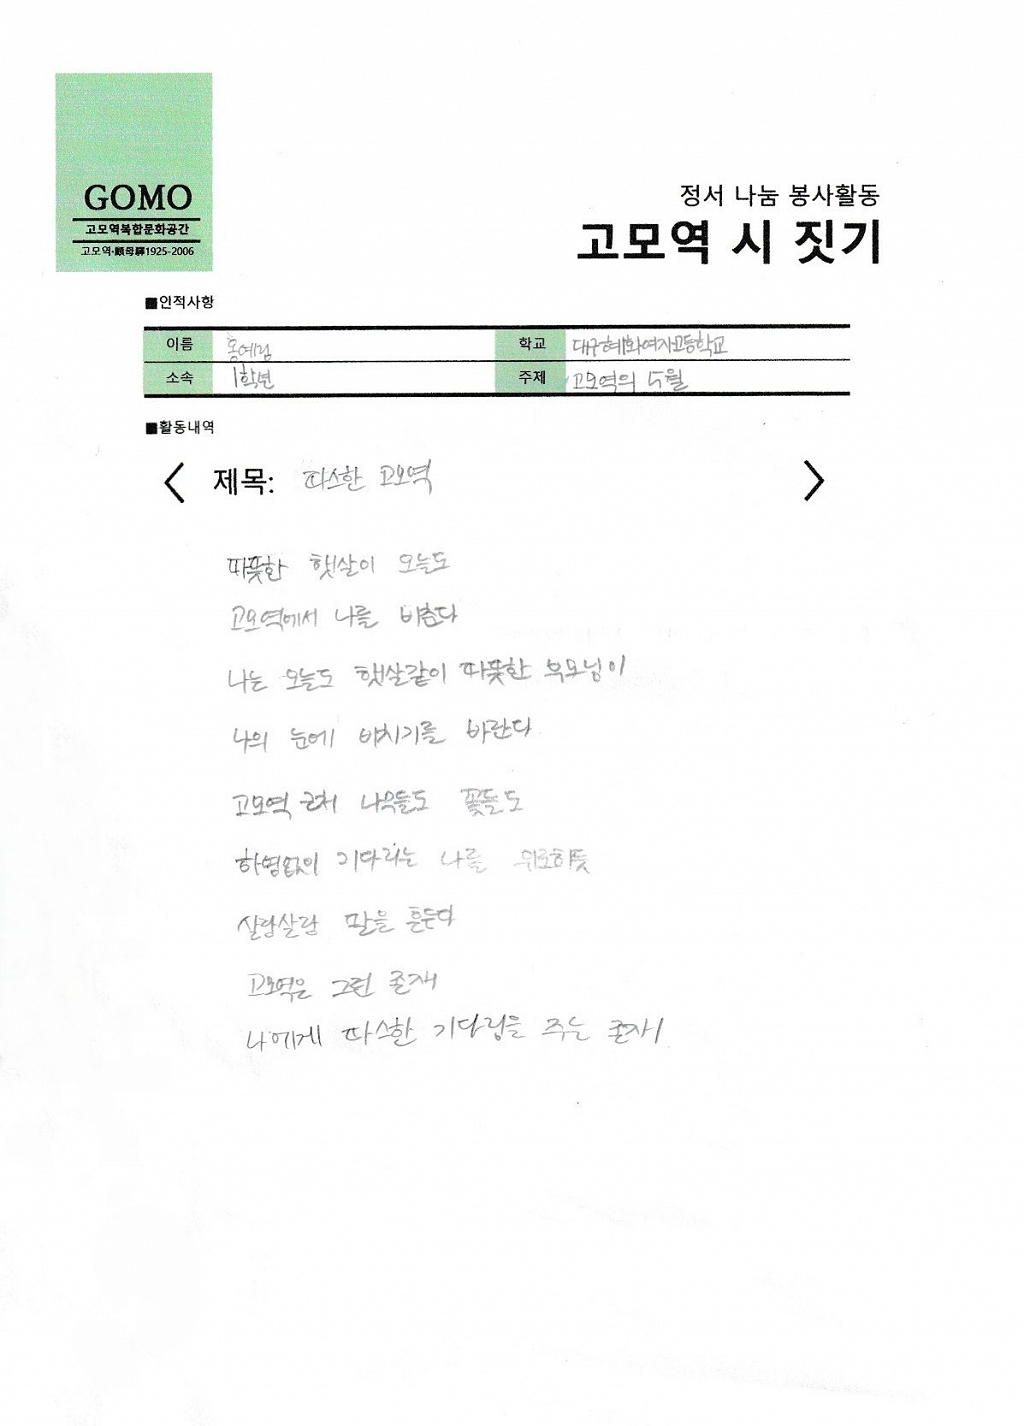 GOMO
고모역복합문화공간
고모역·顧母驛1925-2006
정서 나눔 봉사활동
고모역 시 짓기
■인적사항
이름 홍예림 학교 대구혜화여자고등학교
소속 1학년 주제 고모역의 5월
■활동내역
< 제목: 따스한 고모역 >
따뜻한 햇살이 오늘도
고모역에서 나를 비춘다
나는 오늘도 햇살같이 따뜻한 부모님이
나의 눈에 비치기를 바란다
고모역 근처 나무들도 꽃들도
하염없이 기다리는 나를 위로하듯
살랑살랑 팔을 흔든다
고모역은 그런 존재
나에게 따스한 기다림을 주는 존재